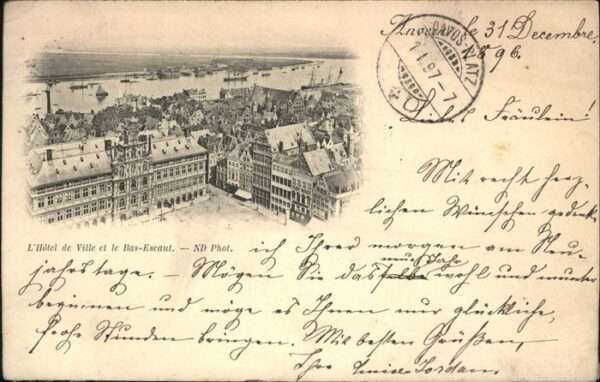 Anvers, le 31 Decembre.
1896.
DAVOS-PLATZ
1.I.97.-7
Fräulein!
Mit recht herz-
lichen Wünschen gedenke
L'Hôtel de Ville et le Bas-Escaut. — ND Phot.
ich Ihrer morgen am Neu-
jahrstage. - Mögen Sie das neue Jahr
wohl und munter
beginnen und möge es Ihnen nur glückliche,
frohe Stunden bringen. Mit besten Grüßen,
Ihre Luise Jordan.